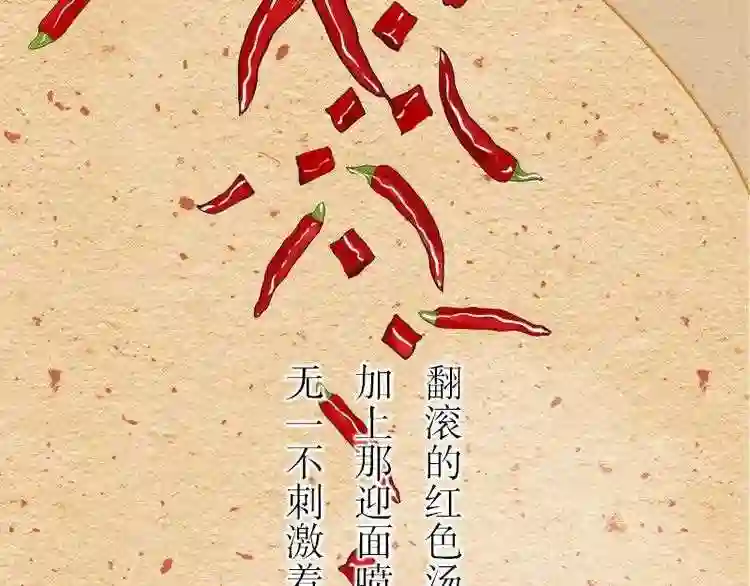 翻滚的红色汤
加上那迎面喷
无一不刺激着